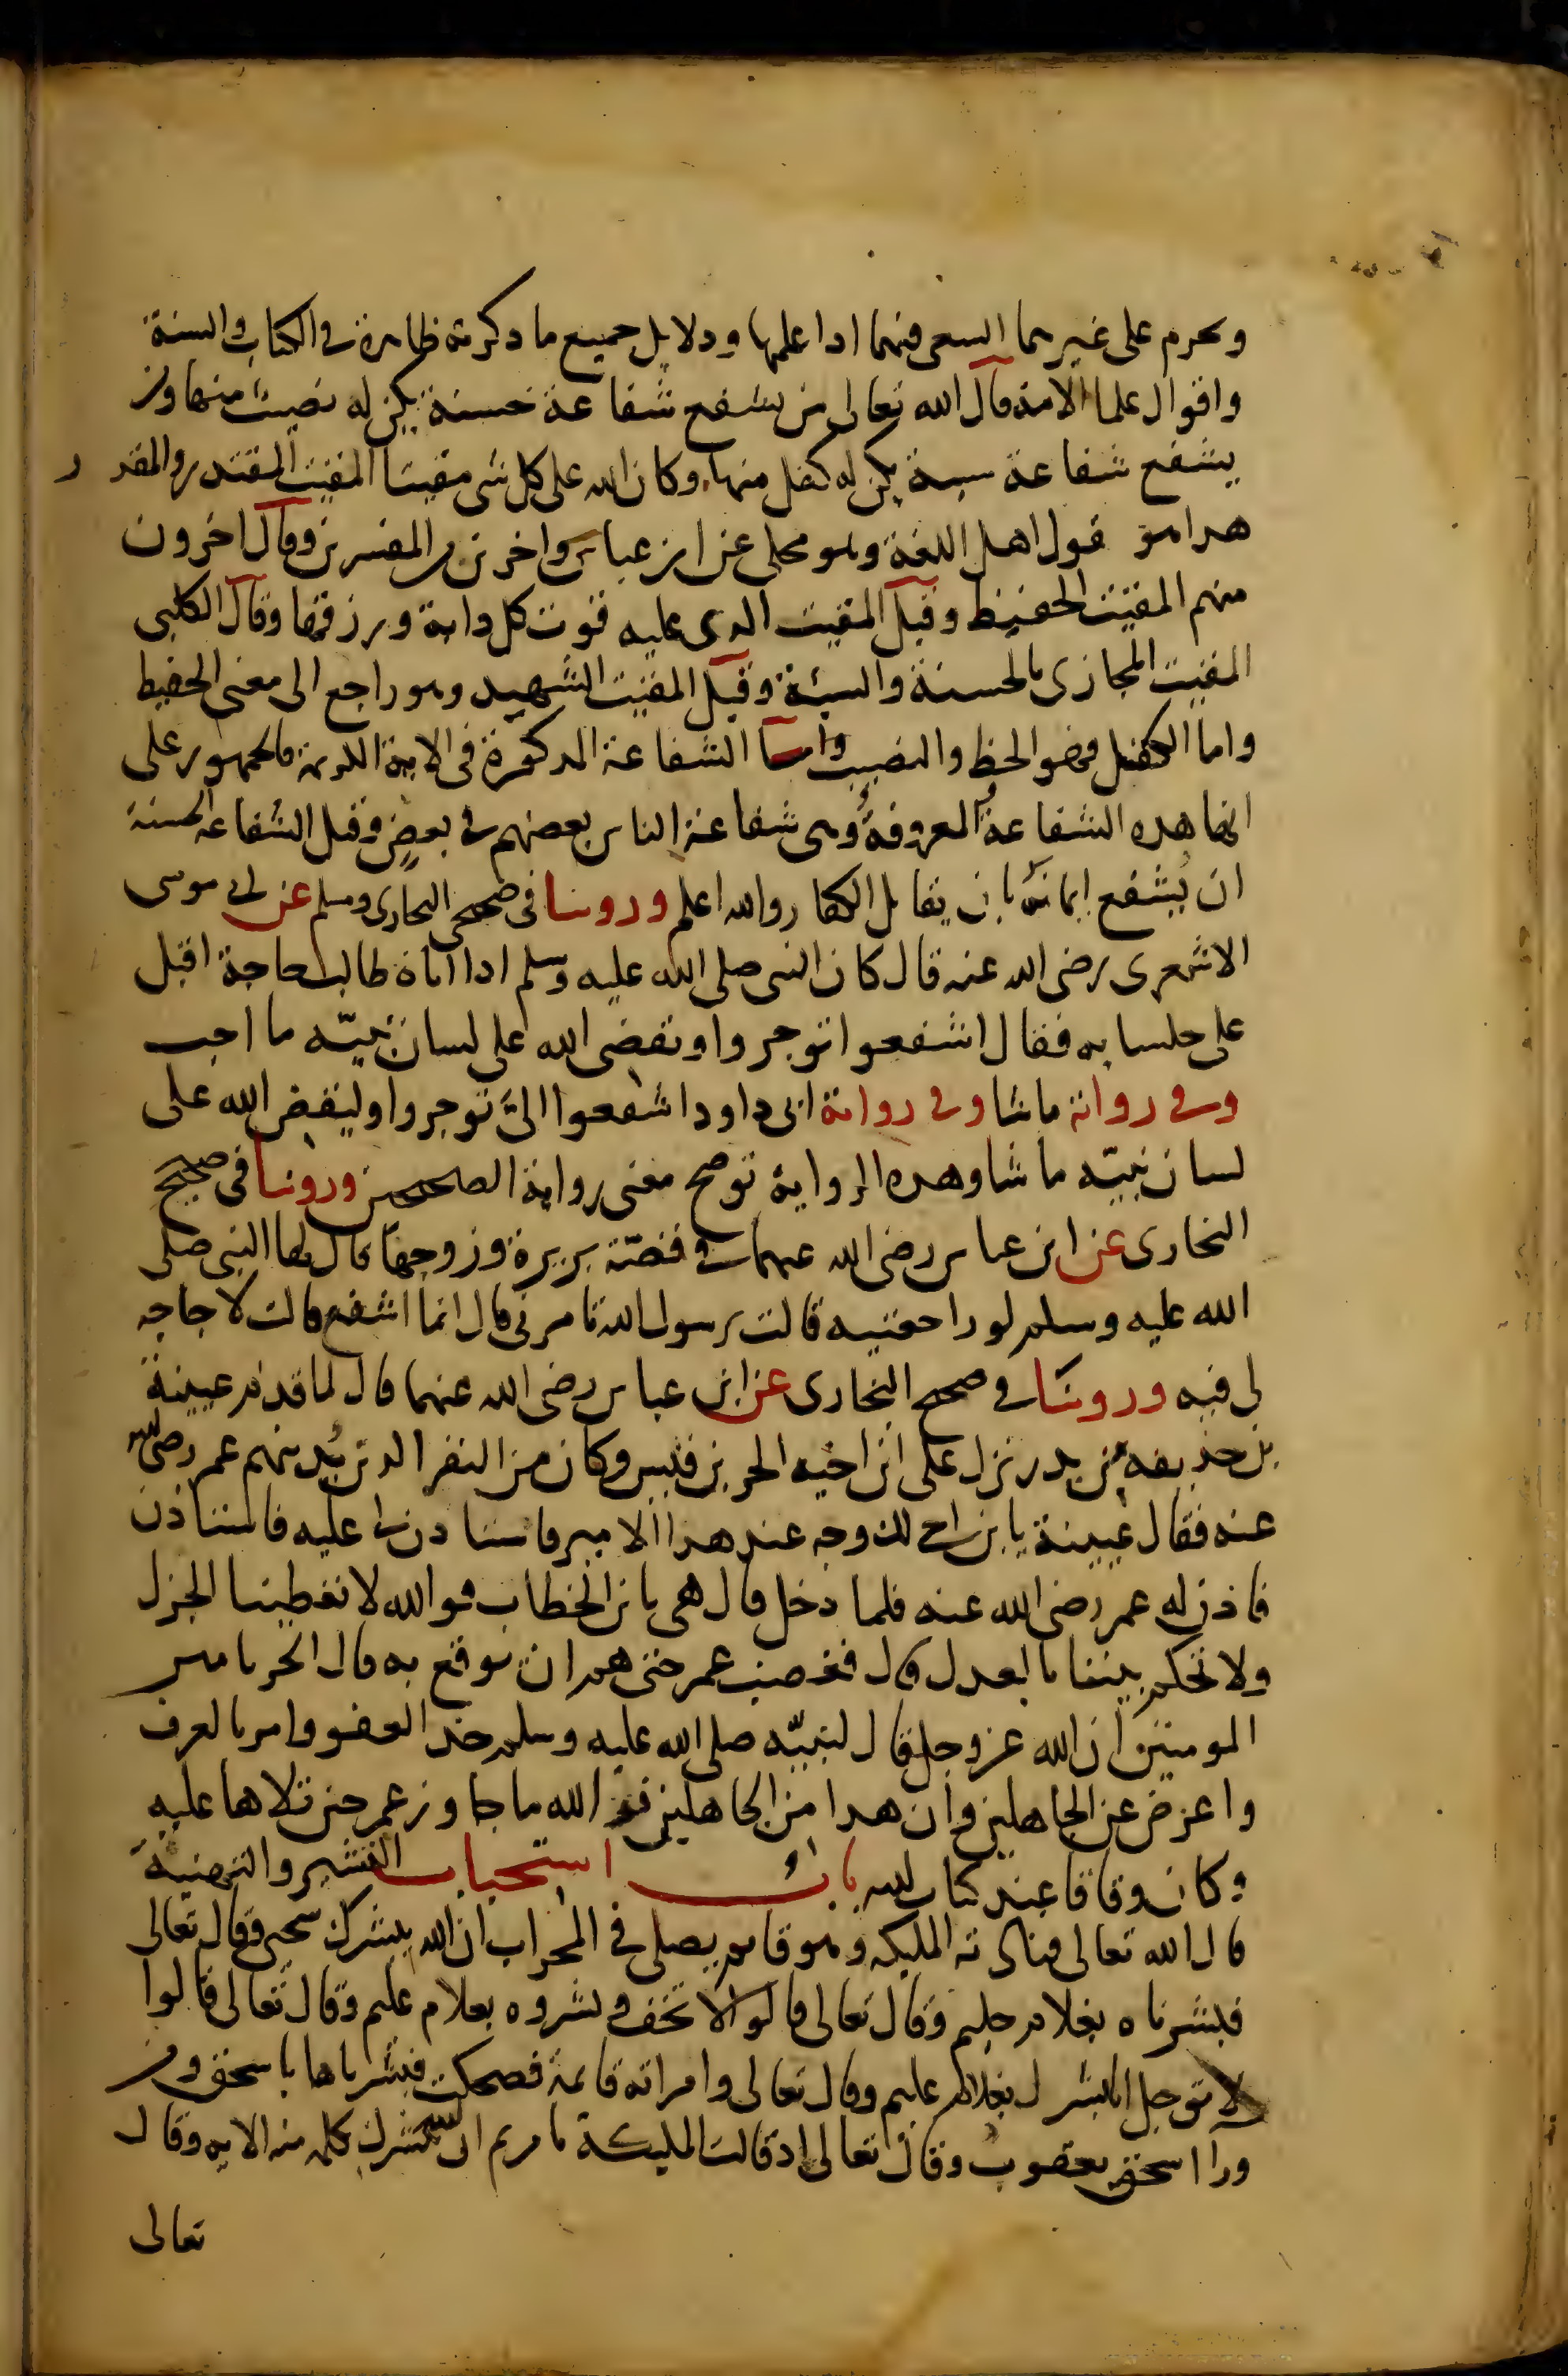 ويحرم على غيرهما السعى فيهما اذا علمها ودلايل جميع ما ذكرته ظاهرة في الكتاب والسنة
واقوال علما الامة قال الله تعالى من يشفع شفاعة حسنة يكن له نصيب منها ومن
يشفع شفاعة سيية يكن له كفل منها وكان الله على كل شى مقيتا المقيت المقتدر والمقدر
هذا هو قول اهل اللغة وهو محكى عن ابن عباس واخرين من المفسرين وقال اخرون
منهم المقيت الحفيظ وقيل المقيت الذى عليه قوت كل دابة ورزقها وقال الكلبى
المقيت المجازى بالحسنة والسيئة وقيل المقيت الشهيد وهو راجع الى معنى الحفيظ
واما الكفل فهو الحظ والنصيب واما الشفاعة المذكورة فى الاية الكريمة فالجمهور على
انها هذه الشفاعة المعروفة وهى شفاعة الناس بعضهم في بعض وقيل الشفاعة الحسنة
ان يشفع ايمانه بان يقاتل الكفار والله اعلم وروينا فى صحيحى البخارى ومسلم عن ابى موسى
الاشعرى رضى الله عنه قال كان النبى صلى الله عليه وسلم اذا اتاه طالب حاجة اقبل
على جلسايه فقال اشفعوا توجروا وتقضى الله على لسان نبيّه ما احب
وفي رواية ما شا وفى رواية ابى داود اشفعوا الىّ توجروا وليقض الله على
لسان نبيّه ما شا وهذه الرواية توضح معنى رواية الصحيحين وروينا فى صحيح
البخارى عن ابن عباس رضى الله عنهما في قصّة بريرة وزوجها قال لها النبى صلى
الله عليه وسلم لو راجعتيه قالت يرسول الله تامرنى قال انما اشفع قالت لا حاجه
لى فيه وروينا في صحيح البخارى عن ابن عباس رضى الله عنهما قال لما قدم عيينة
بن حذيفه بن بدر نزل على ابن اخيه الحر بن قيس وكان من النفر الذين يُدنيهم عمر رضى الله
عنه فقال عيينة يا بن اخى لك وجه عند هذا الامير فاستاذن لى عليه فاستاذن
فاذن له عمر رضى الله عنه فلما دخل قال هى يا بن الخطاب فوالله لا تعطينا الجزل
ولا تحكم بيننا بالعدل قال فغضب عمر حتى هم ان يوقع به قال الحر يا مير
المومنين ان الله عز وجل قال لنبيّه صلى الله عليه وسلم خذ العفو وامر بالعرف
واعرض عن الجاهلين وان هذا من الجاهلين فو الله ما جاوز عمر حين تلاها عليه
وكان وقافا عند كتاب الله باب استحباب التبشير والتهنية
قال الله تعالى فنادته المليكه وهو قايم يصلى في المحراب ان الله يبشرك بيحيى وقال تعالى
فبشرناه بغلام حليم وقال تعالى قالوا لا تخف وبشروه بغلام عليم وقال تعالى قالوا
لا توجل انا نبشرك بغلام عليم وقال تعالى وامراته قايمة فضحكت فبشرناها باسحق ومن
ورا اسحق يعقوب وقال تعالى اذ قالت المليكة يا مريم ان الله يبشرك بكلمة منه الايه وقال
تعالى